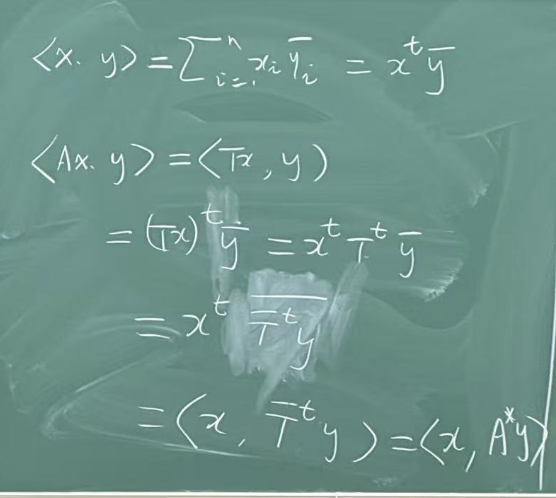 ⟨x. y⟩ = ∑ⁿᵢ₌₁ xᵢ ȳᵢ = xᵗ ȳ
⟨Ax. y⟩ = ⟨Tx, y⟩
= (Tx)ᵗ ȳ = xᵗ Tᵗ ȳ
= xᵗ \overline{T̄ᵗ y}
= ⟨x, T̄ᵗ y⟩ = ⟨x, A*y⟩